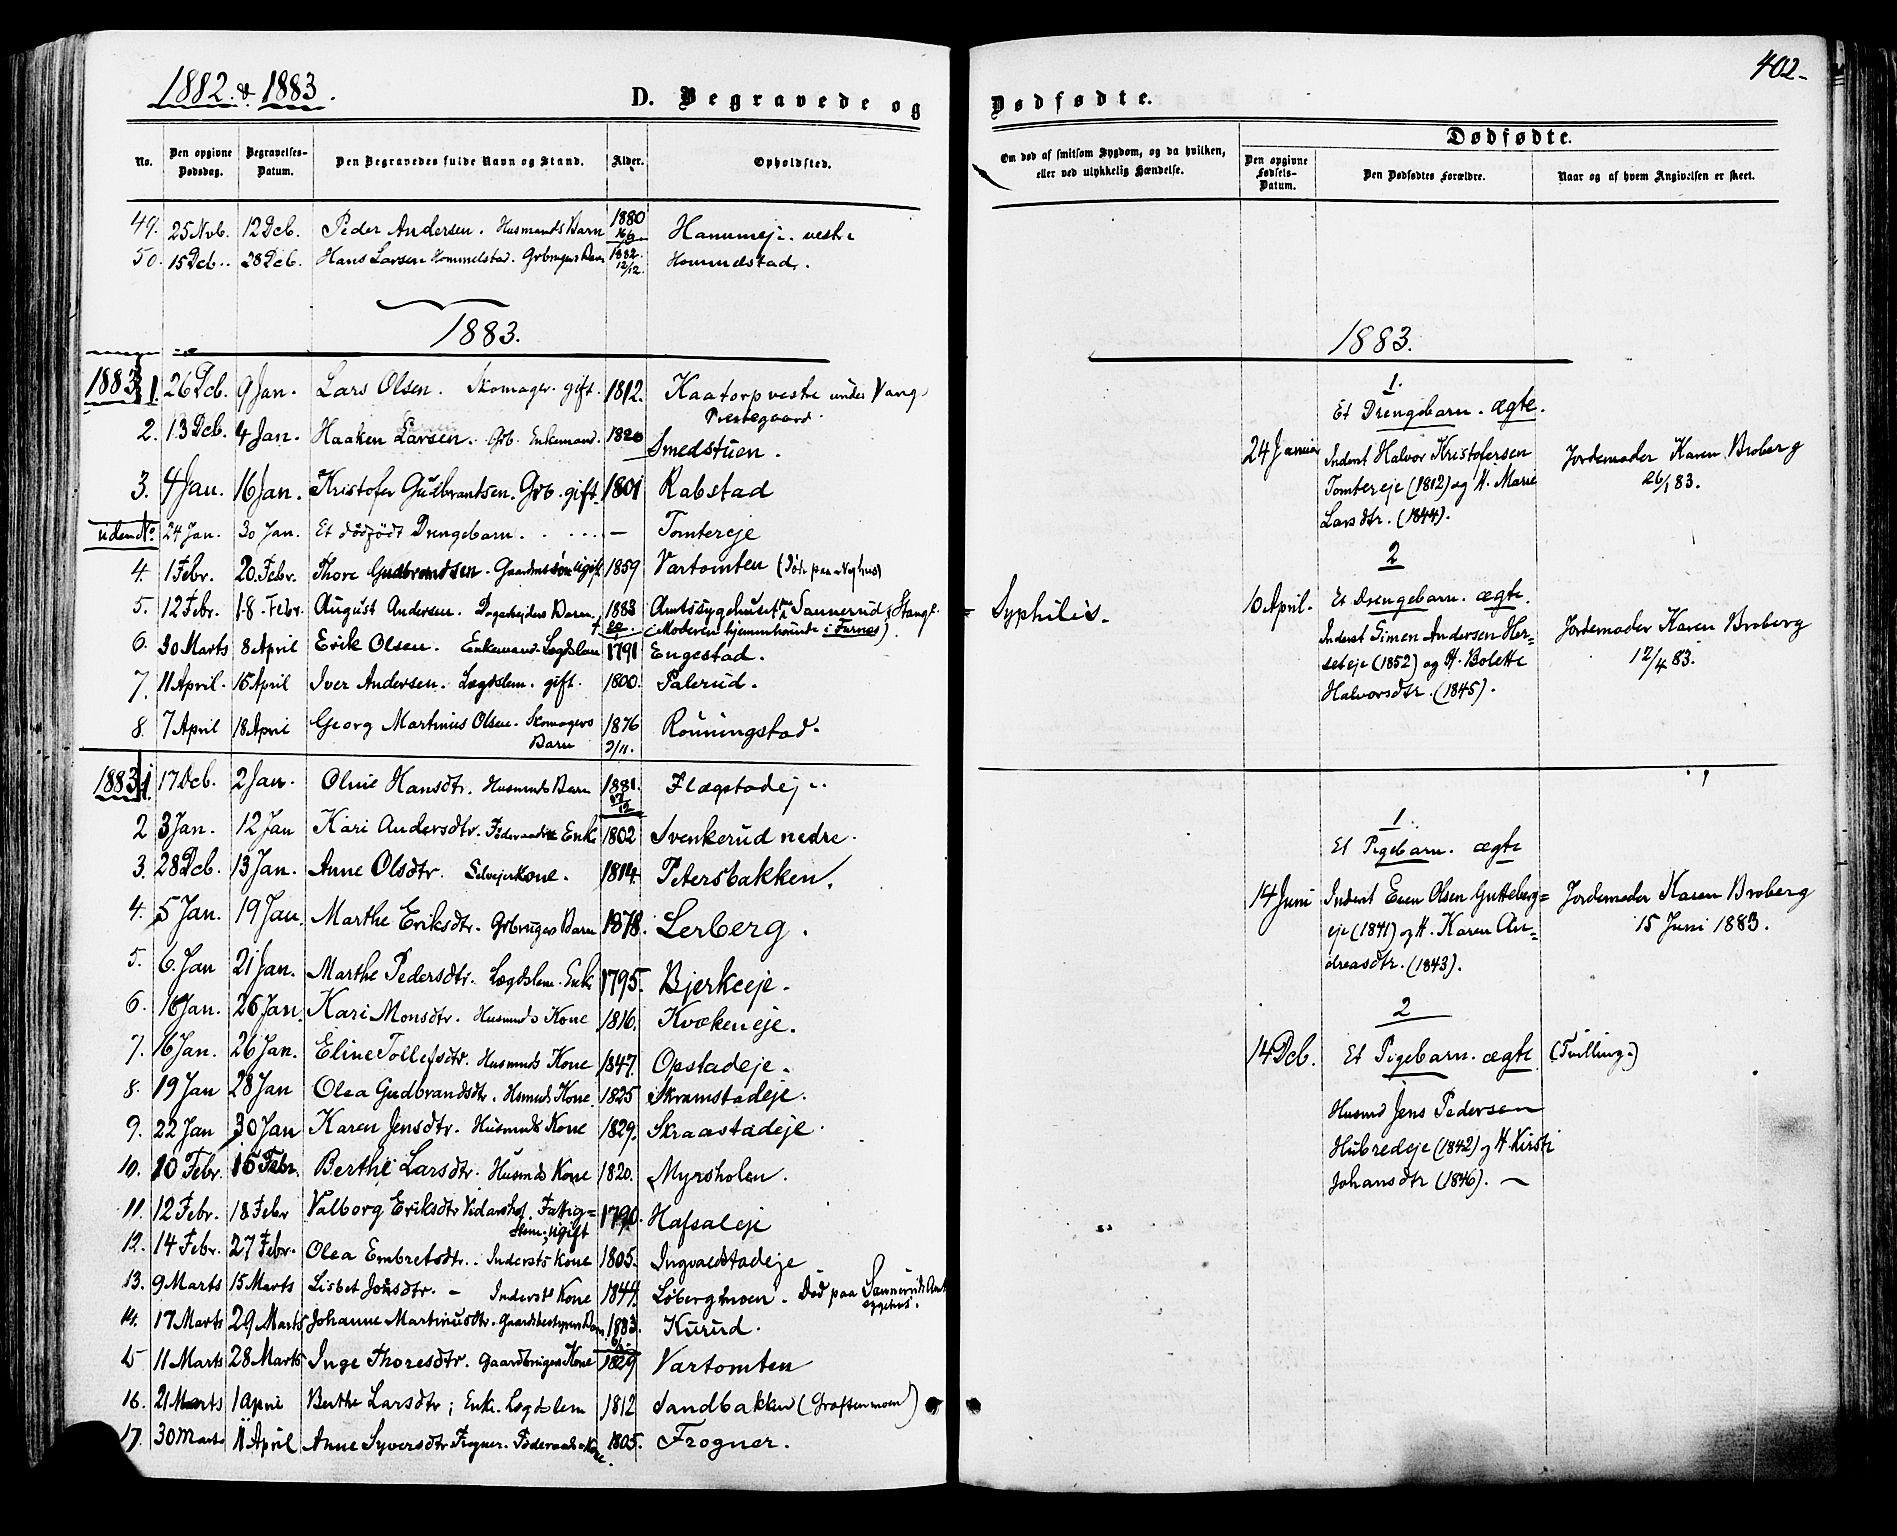 1882 & 1883.
D. Begravede og
No.
Den opgivne Dødsdag.
Begravelses-Datum.
Den Begravedes fulde Navn og Stand.
Alder.
Opholdsted.
49. 25 Nvb. 12 Dcb. Peder Andersen. Husmands Barn 1880 16/3 Hammeje. vestre
50. 15 Dcb.. 28 Dcb. Hans Larsen Hommelstad. Grbrugers Barn 1882. 12/12. Hommelstad.
1883.
1883 1. 26 Dcb. 9 Jan. Lars Olsen. Skomager. gift. 1812. Kaatorp vestre under Vang
Præstegaard.
2. 13 Dcb. 4 Jan. Haaken Larsen. Grb. Enkemand. 1820 Smedstuen.
3. 4 Jan. 16 Jan. Kristofer Gulbrandsen. Grb. gift. 1801 Rabstad
uden No 24 Jan. 30 Jan. Et dødfødt Drengebarn. . . . . . — Tomtereje
4. 1 Febr. 20. Febr. Thore Gudbrandsen. Gaardmssøn Ugift 1859 Vartomten (Død paa Nyhus)
5. 12 Febr. 18. Febr. August Andersen. Dagarbejders Barn 1883 Amtssygehuset paa Sannerud i Stange
(Moderen hjemmhørende i Furnes).
6. 30 Marts 8 April Erik Olsen. Enkemand. Lægdslem 1791 Engestad.
7. 11 April. 15 April Iver Andersen. Lægdslem. gift. 1800. Palerud.
8. 7 April 18 April Georg Martinus Olsen. Skomagers 1876 Rønningstad.
Barn 2/11.
1883 1. 17 Dcb. 2 Jan. Oline Hansdtr. Husmnds Barn 1881. 12 Flagstadej..
2 3 Jan. 12 Jan Kari Andersdtr. Føderaads Enke 1802 Svenkerud nedre.
3. 28 Dcb. 13 Jan. Anne Olsdtr. Selvejerkone. 1814. Petersbakken.
4. 5 Jan. 19 Jan. Marthe Eriksdtr. Grbrugers Barn 1878. Lerberg.
5. 6. Jan 21 Jan. Marthe Pedersdtr. Lægdslem. Enke 1795. Bjerkeeje.
6. 16 Jan. 26 Jan. Kari Monsdtr. Husmnds Kone 1816. Kvækeneje.
7. 16 Jan. 26 Jan. Eline Tollefsdtr. Husmnds Kone 1847. Opstadeje.
8. 19 Jan 28 Jan Olea Gudbrandsdtr. Hsmnds Kone 1825 Skramstadeje.
9. 22 Jan 30 Jan Karen Jensdtr. Husmnds Kone 1829. Skraastadeje.
10. 10 Febr. 15 Febr. Berthe Larsdtr. Husmds Kone 1820. Myrsholen.
11. 12 Febr. 18 Febr Valborg Eriksdtr Vidarshof. Fattig=
lem. ugift 1790. Hafsaleje
12. 14 Febr. 27 Febr. Olea Embretsdtr.. Indersts Kone 1805. Ingvaldstadeje
13. 9 Marts 15 Marts Lisbet Jonsdtr. – Inderst Kone 1844. Løbergmoen. Død paa Sannerud Amt
sygehus.
14. 17 Marts 29 Marts Johanne Martinusdtr. Gaardsbestyrers Barn. 1883. Kurud.
15 11 Marts 28 Marts Inge Thoresdtr. Gaardbrugers Kone 1829 Vartomten
16. 21 Marts 1 April Berthe Larsdtr; Enke. Lægdslem 1812 Sandbakken (Grøftenmoen)
17. 30 Marts 11 April Anne Syversdtr Frogner. Føderaads Kone. 1805. Frogner.
402.
Dødfødte.
Om død af smitsom Sygdom, og da hvilken, eller ved ulykkelig Hændelse.
Dødfødte.
Den opgivne Fødsels-Datum.
Den Dødfødtes Forældre.
Naar og af hvem Angivelsen er skeet.
1883.
1.
Et Drengebarn. ægte.
24 Januar Inderst Halvor Kristofersen Jordemoder Karen Broberg
Tomtereje (1812) og H. Marie 26/1 83.
Larsdtr. (1844).
2
Syphilis.
10 April. Et Drengebarn. ægte.
Inderst Simen Andersen Her- Jordemoder Karen Broberg
seteje (1852) og H. Bolette 12/4 83.
Halvorsdtr. (1845).
1.
Et Pigebarn. ægte
14 Juni Inderst Even Olsen Gutteberg= Jordemoder Karen Broberg
eje (1841) og H. Karen An= 15 Juni 1883.
dreasdtr. (1843).
2
14 Dcb. Et Pigebarn. ægte (Tvilling.)
Husmd Jens Pedersen
Hubredeje (1842) og H. Kirsti
Johansdtr (1846). —